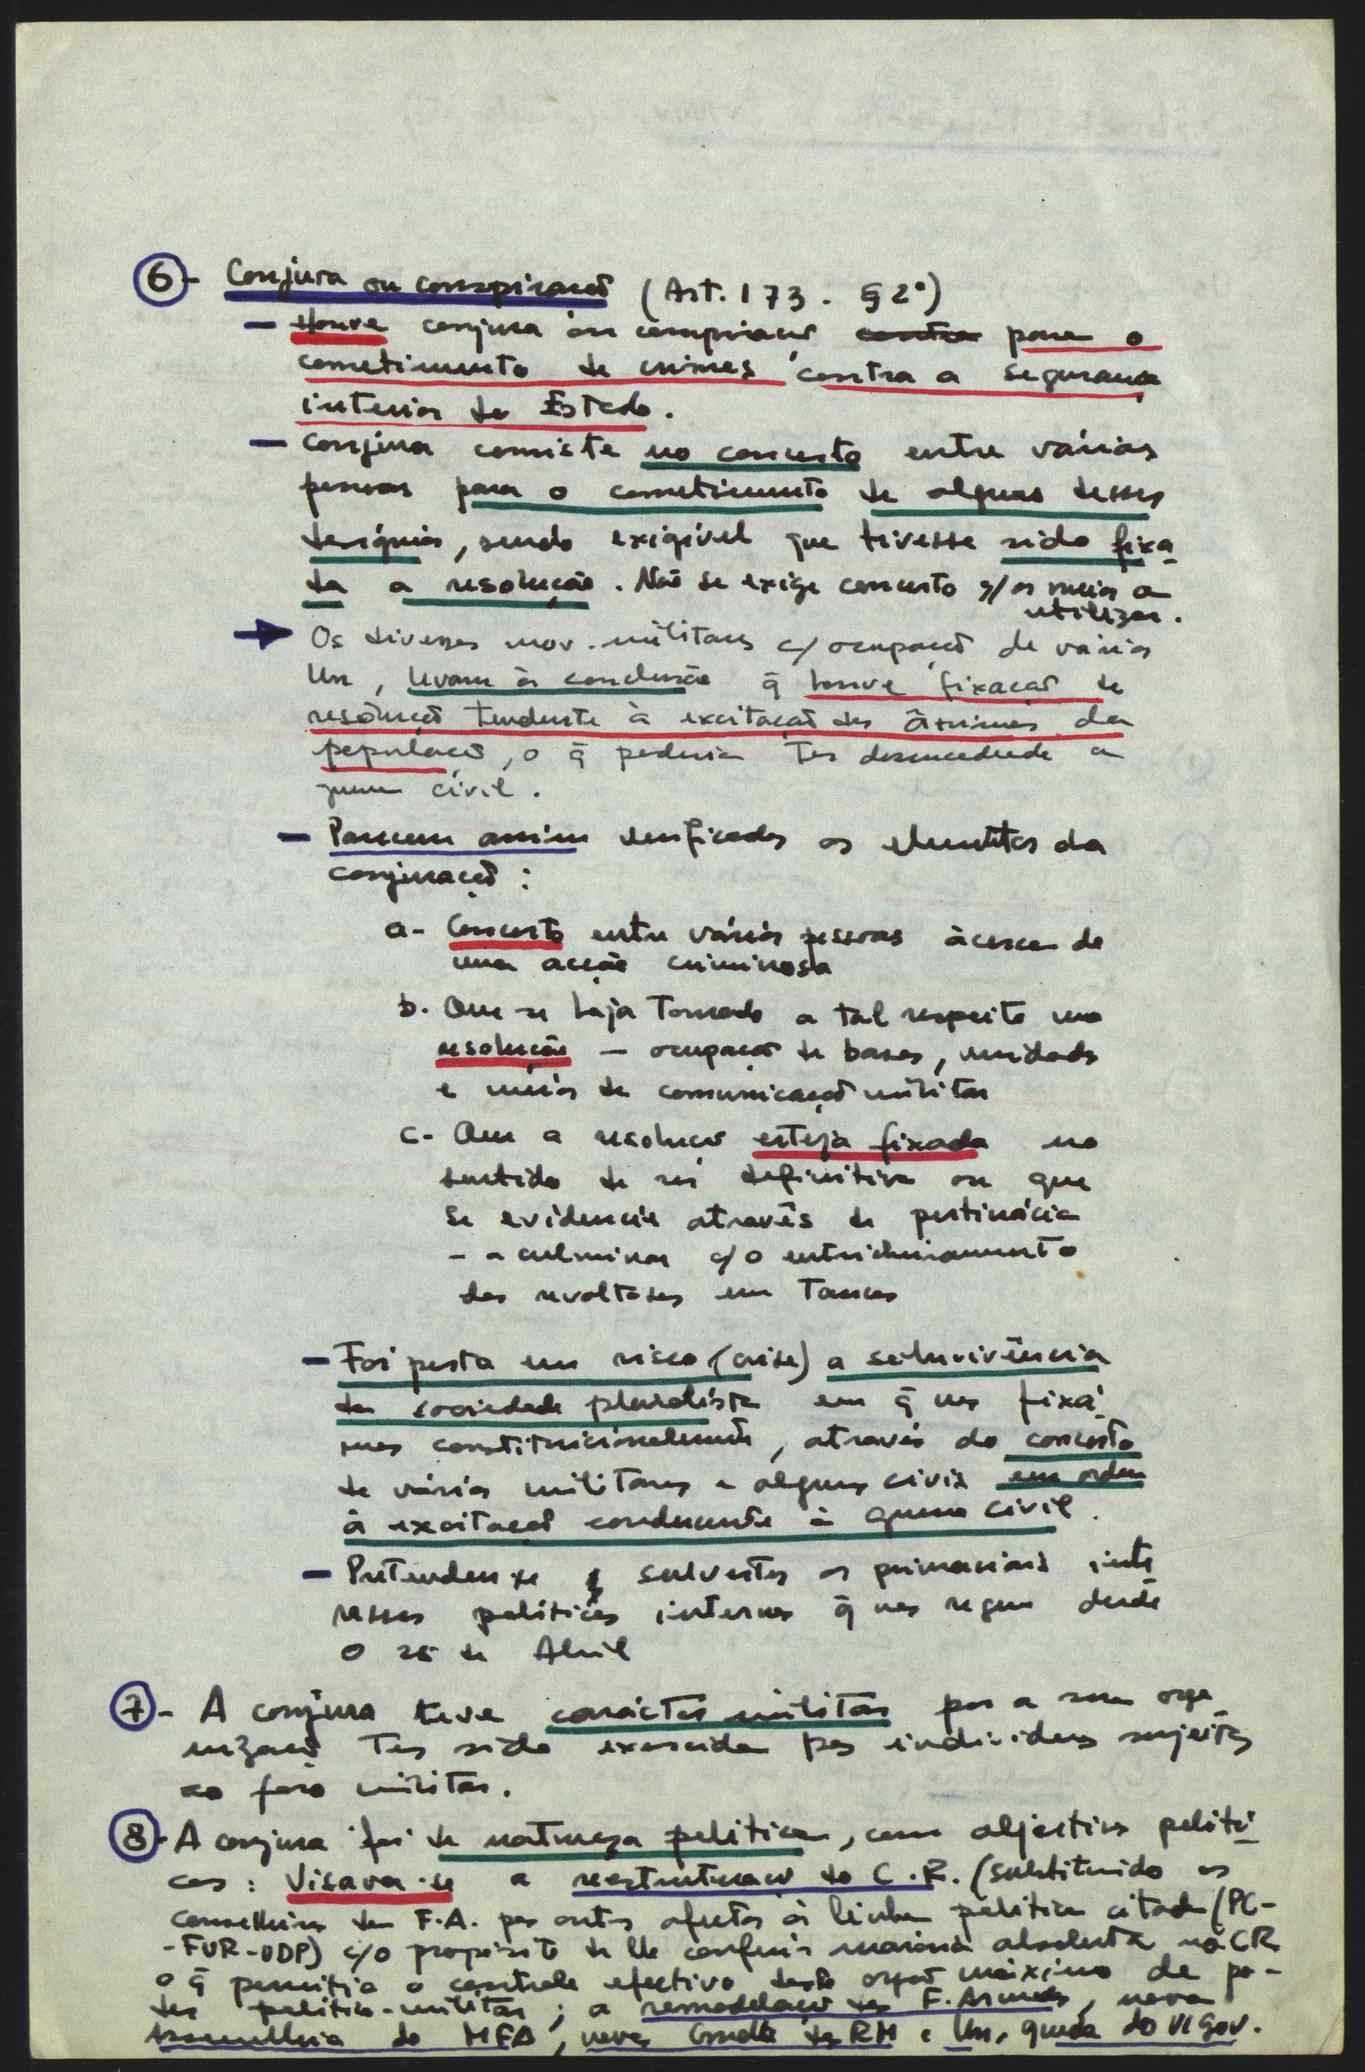 6 - Conjura ou conspiração (Art. 173. § 2º)
- Houve conjura ou conspiração contra para o
cometimento de crimes contra a segurança
interior do Estado.
- Conjura consiste no concerto entre várias
pessoas para o cometimento de algum desses
desígnios, sendo exigível que tivesse sido fixa-
da a resolução. Não se exige concerto s/ os meios a
utilizar.
→ Os diversos mov. militares c/ ocupação de várias
Un, levam à conclusão q̃ houve fixação de
resolução tendente à excitação dos ânimos da
população, o q̃ poderia ter desencadeado a
guerra civil.
- Parecem assim verificados os elementos da
conjuração:
a- Concerto entre várias pessoas àcerca de
uma acção criminosa
b. Que se haja tomado a tal respeito uma
resolução - ocupação de bases, unidades
e meios de comunicação militar
c- Que a resolução esteja fixada no
sentido de ser definitiva ou que
se evidencie através de pertinácia
- a culminar c/o entrincheiramento
dos revoltosos em Tancos
- Foi posta em risco (crise) a sobrevivência
da sociedade pluralista em q̃ nos fixá-
mos constitucionalmente, através do concerto
de vários militares e alguns civis em ordem
à excitação conducente à guerra civil.
- Pretendeu-se subverter os primaciais inte
resses políticos internos q̃ nos regem desde
o 25 de Abril
7 - A conjura teve carácter militar por a sua orga-
nização ter sido exercida por indivíduos sujeitos
ao foro militar.
8 - A conjura foi de natureza política, com objectivos políti-
cos: Visava-se a reestruturação do C.R. (substituindo os
Conselheiros da F.A. por outros afectos à linha política citada (PC-
-FUR-UDP) c/o propósito de lhe conferir maioria absoluta no CR
o q̃ permitia o controle efectivo deste orgão máximo de po-
der político-militar; a remodelação das F. Armadas, nova
Assembleia do MFA, novos Cmdts das RM e Un, queda do VI Gov.